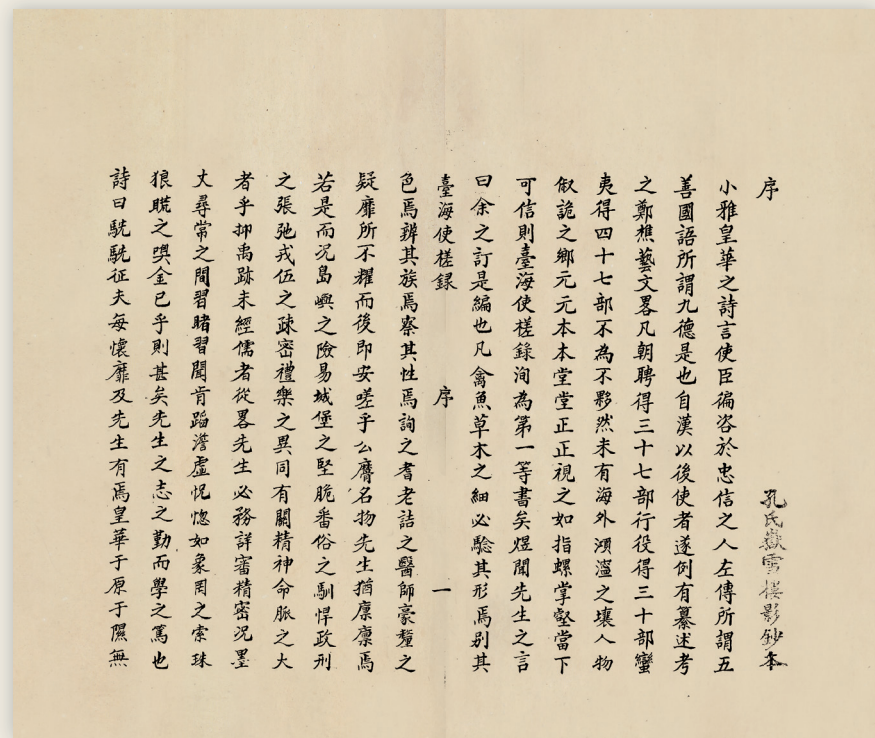 序
孔氏嶽雪樓影鈔本
小雅皇華之詩言使臣徧咨於忠信之人左傳所謂五
善國語所謂九德是也自漢以後使者遂例有纂述考
之鄭樵藝文畧凡朝聘得三十七部行役得三十部蠻
夷得四十七部不為不夥然未有海外澒濛之壤人物
俶詭之鄉元元本本堂堂正正視之如指螺掌壑當下
可信則臺海使槎錄洵為第一等書矣煜聞先生之言
曰余之訂是編也凡禽魚草木之細必驗其形焉别其
臺海使槎録 序 一
色焉辨其族焉察其性焉詢之耆老詰之醫師豪釐之
疑靡所不耀而後即安嗟乎么麿名物先生猶廩廩焉
若是而况島嶼之險易城堡之堅脆番俗之馴悍政刑
之張弛戎伍之疎密禮樂之異同有關精神命脈之大
者乎抑禹跡未經儒者從畧先生必務詳審精密况墨
丈尋常之間習睹習聞肯蹈虛怳惚如象罔之索珠
狼䁖之㗖金已乎則甚矣先生之志之勤而學之篤也
詩曰駪駪征夫每懷靡及先生有焉皇華于原于隰無